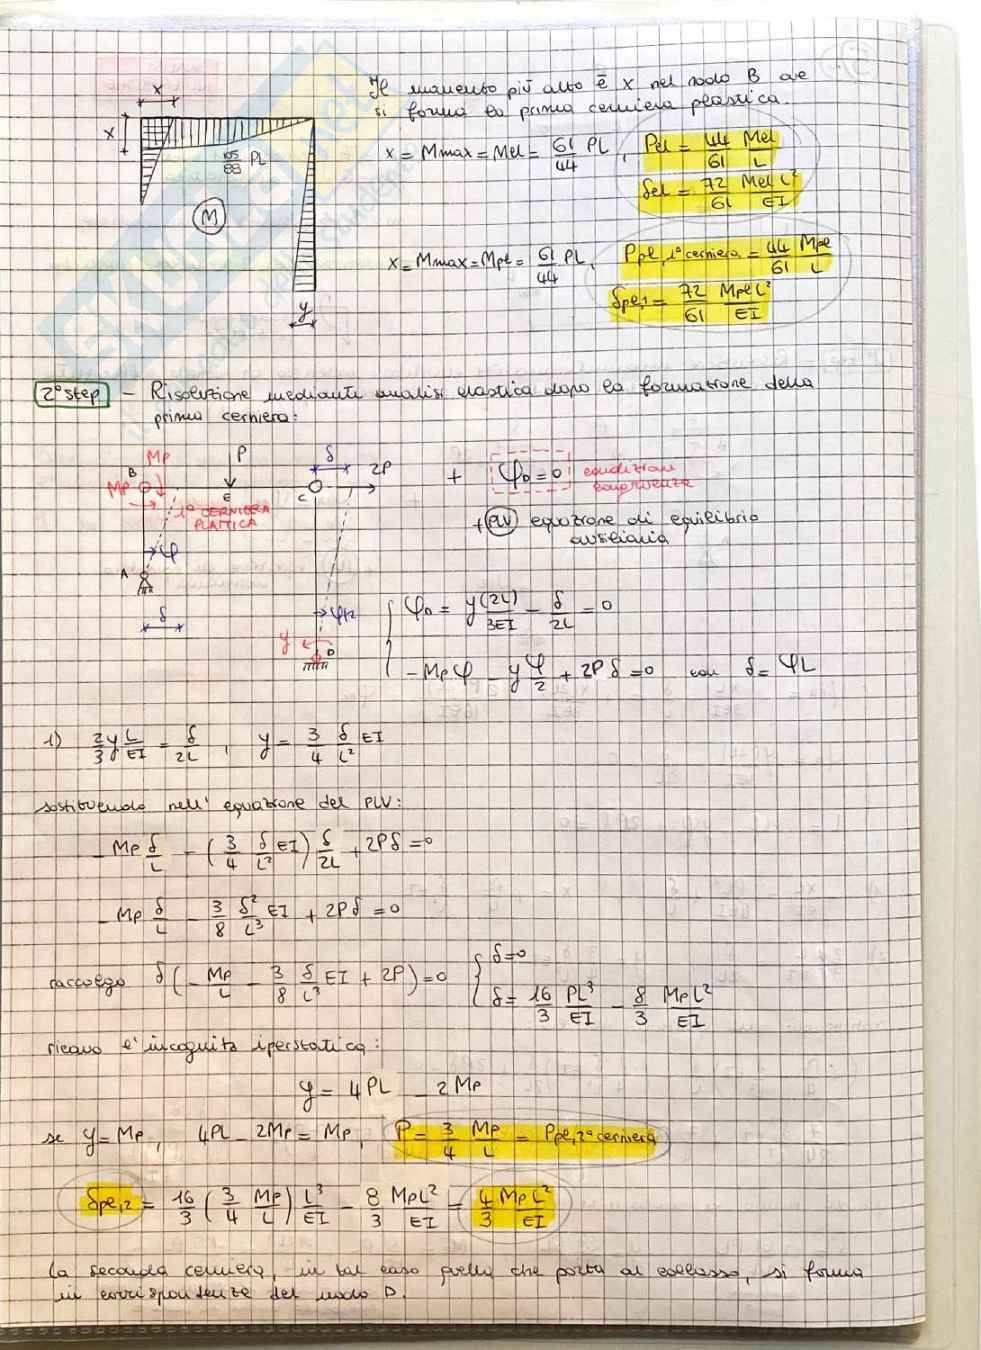 x
Il momento più alto è x nel nodo B ove
si forma la prima cerniera plastica.
x
x = Mmax = Mel = 61/44 PL , Pel = 44/61 Mel/L
105/88 PL
δel = 72/61 Mel L²/EI
M
x = Mmax = Mpl = 61/44 PL , Ppl,1° cerniera = 44/61 Mpl/L
δpl,1 = 72/61 Mpl L²/EI
y
2° step – Risoluzione mediante analisi elastica dopo la formazione della
prima cerniera:
Mp P δ 2P
B
Mp E C
1° CERNIERA
PLASTICA
+ φD = 0 condizioni
congruenza
+ PLV equazione di equilibrio
ausiliaria
φ
A
δ
φ/2
y D
φD = y(2L)/3EI – δ/2L = 0
– Mp φ – y φ/2 + 2P δ = 0 con δ = φL
1) 2/3 y L/EI = δ/2L , y = 3/4 δ/L² EI
sostituendo nell' equazione del PLV:
– Mp δ/L – (3/4 δ/L² EI) δ/2L + 2Pδ = 0
– Mp δ/L – 3/8 δ²/L³ EI + 2Pδ = 0
raccolgo δ(– Mp/L – 3/8 δ/L³ EI + 2P) = 0 { δ = 0
δ = 16/3 PL³/EI – 8/3 MpL²/EI
ricavo l'incognita iperstatica:
y = 4PL – 2Mp
se y = Mp , 4PL – 2Mp = Mp , P = 3/4 Mp/L = Ppl,2° cerniera
δpl,2 = 16/3 (3/4 Mp/L) L³/EI – 8/3 MpL²/EI = 4/3 MpL²/EI
La seconda cerniera, in tal caso quella che porta al collasso, si forma
in corrispondenza del nodo D.